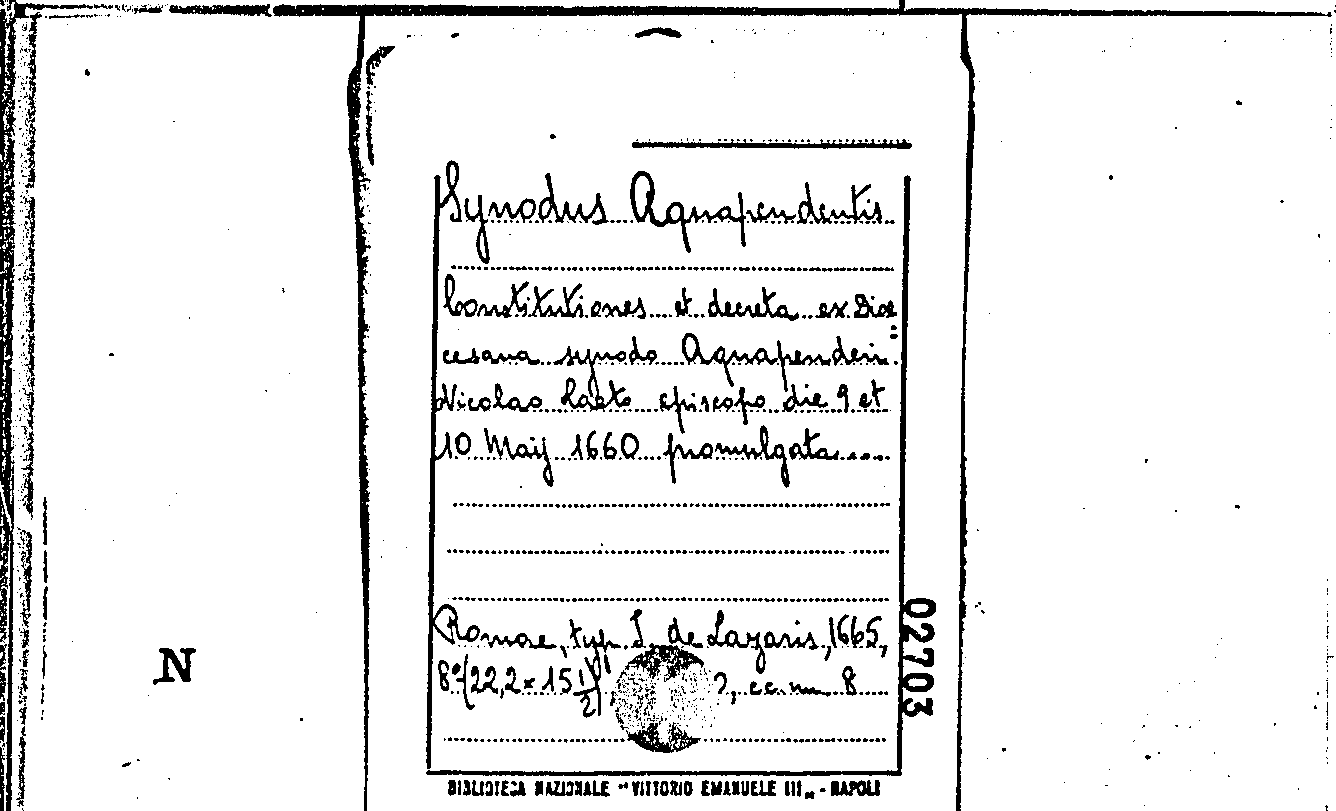 Synodus Aquapendentis
Constitutiones et decreta ex Dioe=
cesana synodo Aquapenden.
Nicolao Laeto episcopo die 9 et
10 Maij 1660 promulgata....
Romae, typ. I. de Lazaris, 1665,
8°(22,2 x 15 1/2), , cc. nn 8
02703
N
BIBLIOTECA NAZIONALE "VITTORIO EMANUELE III„ - NAPOLI